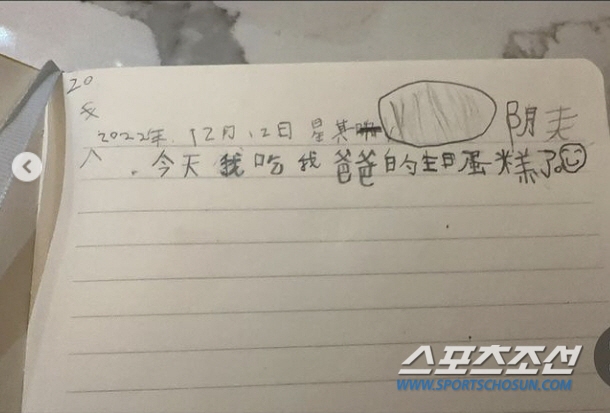 20
2022年 12月 12日 星其 阴走
人
今天我吃我爸爸的生日蛋糕了
스포츠조선
WWW.SPORTSCHOSUN.COM